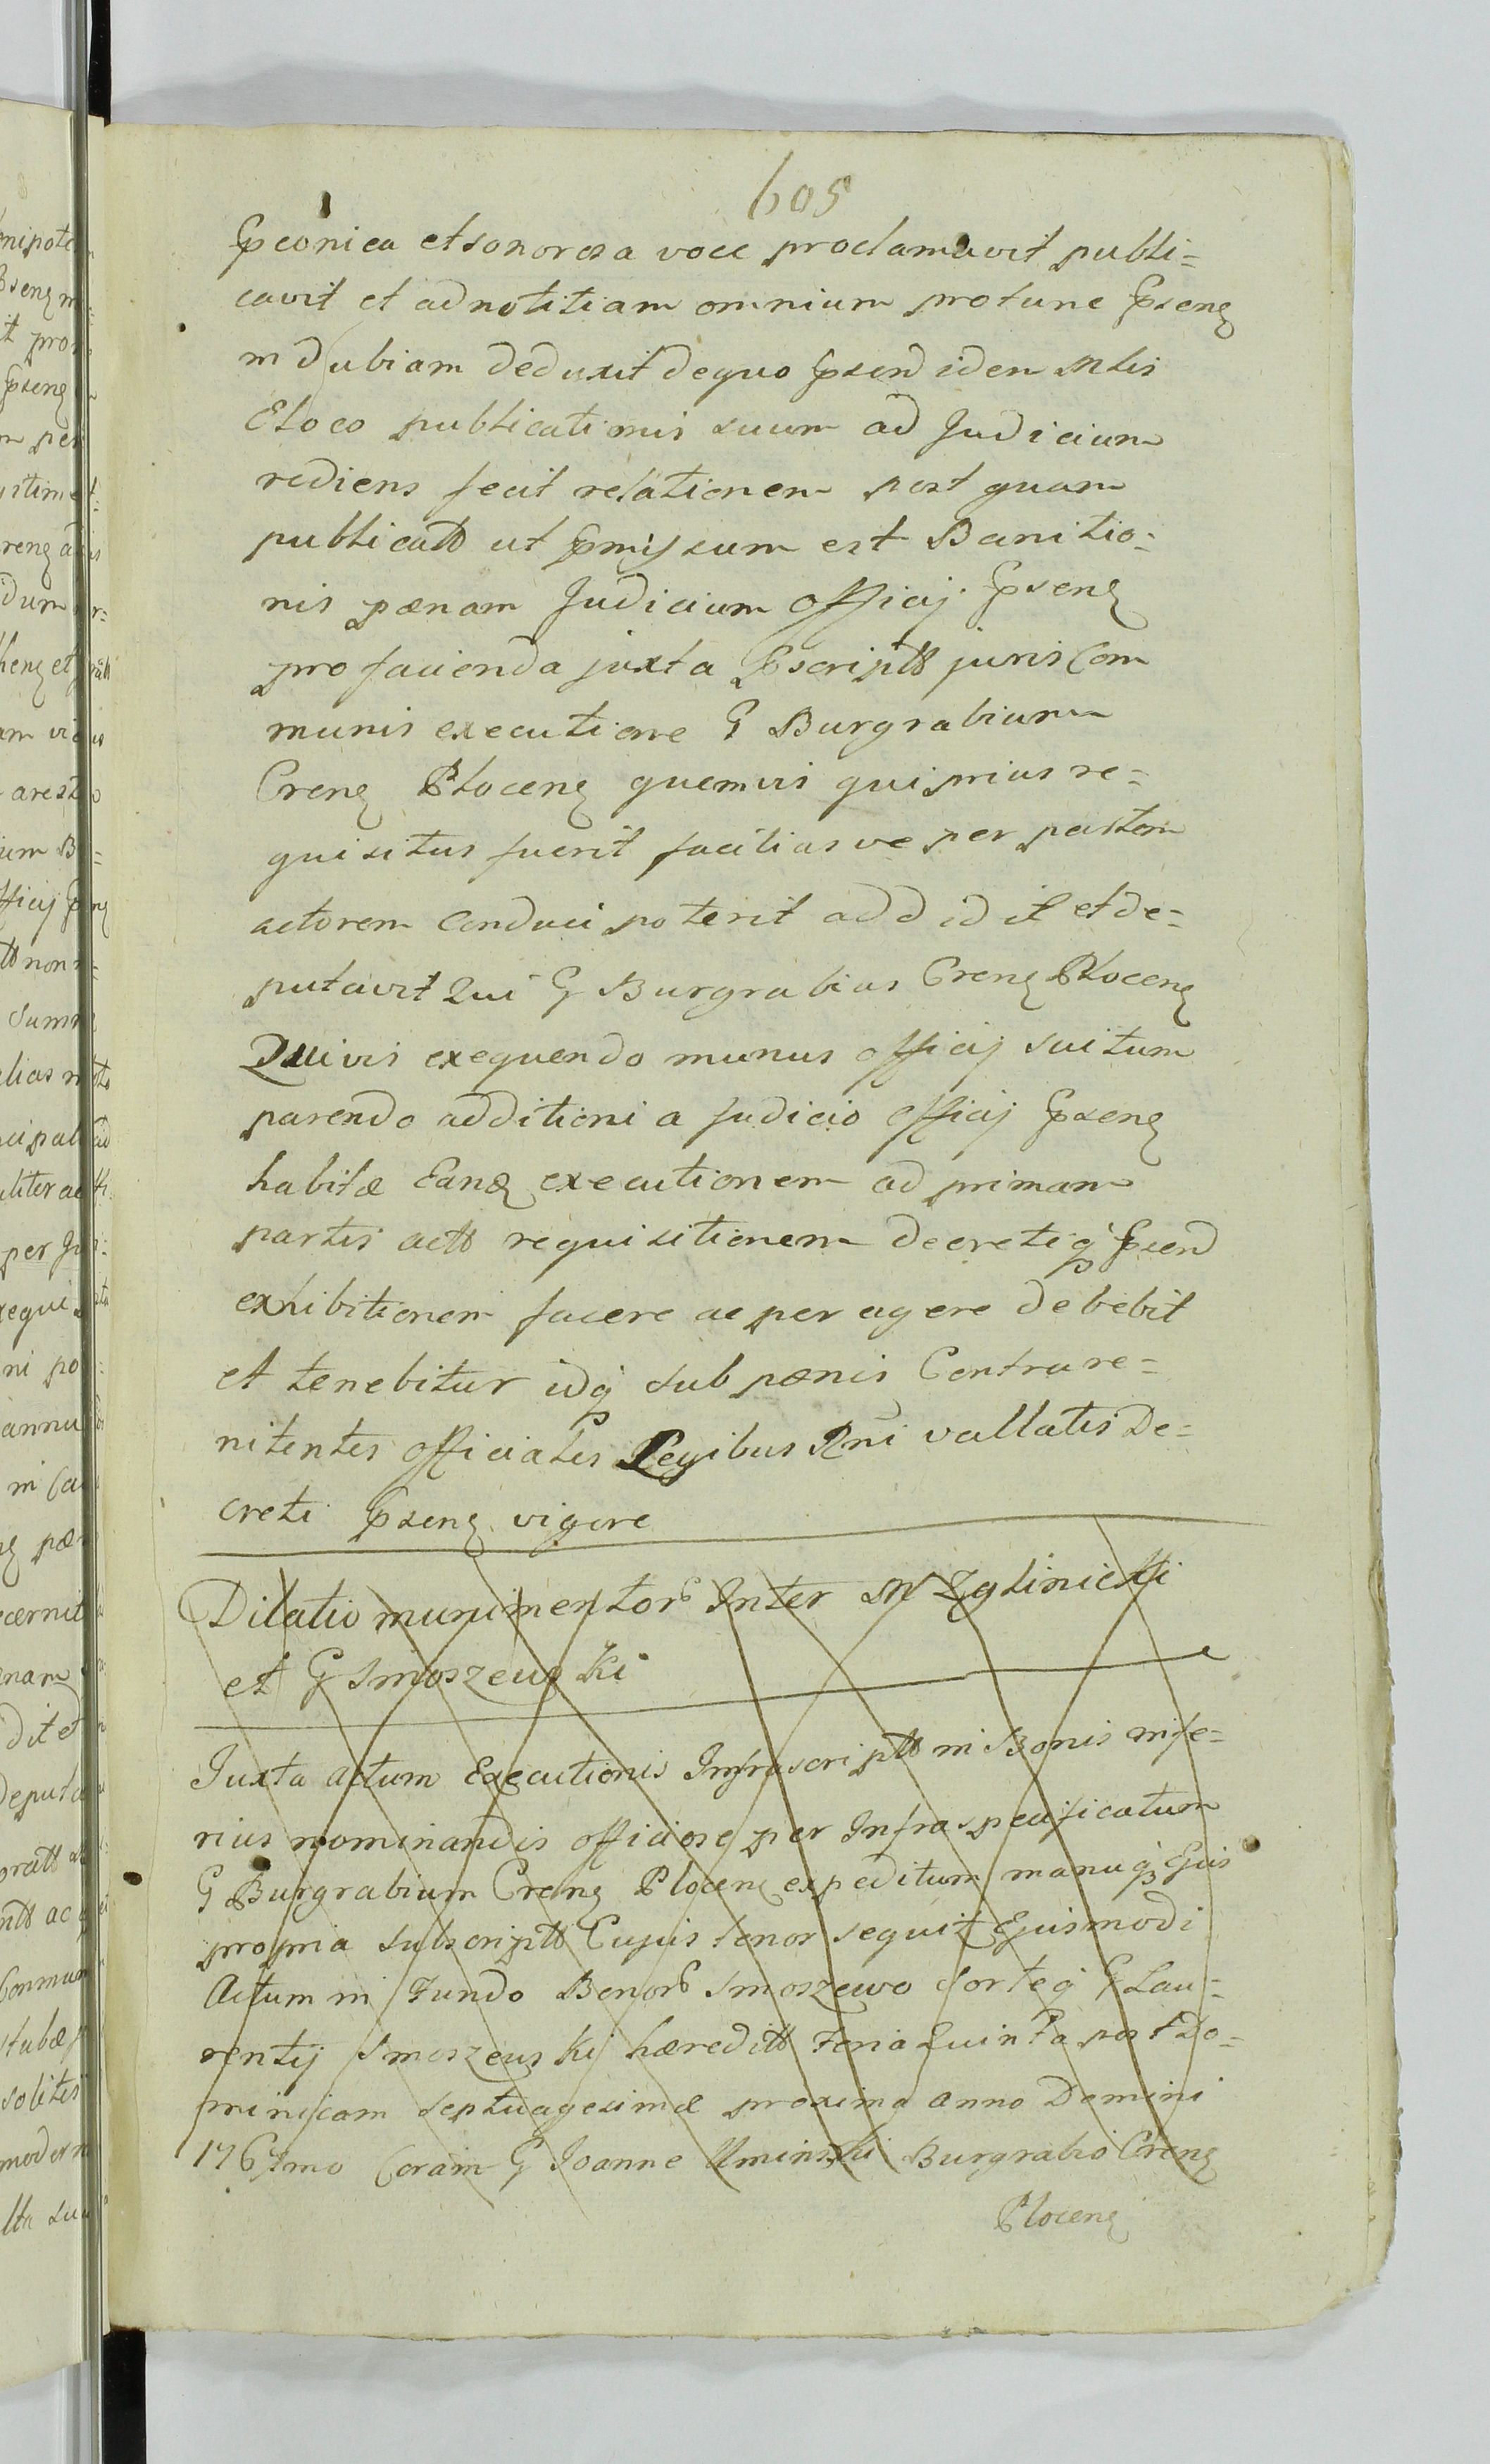 605
Præconica et sonorosa voce proclamavit publi=
cavit et ad notitiam omnium protunc Præseñ
indubiam deduxit de quo Præsend iden Mlis
E loco publicationis suum ad Judicium
rediens fecit relationem post quam
publicatt ut Præmissum est Banitio=
nis pœnam Judicium officij Præseñ
pro facienda juxta Præscriptt juris Com
munis executione G Burgrabium
Creñ Ploceñ quemvis qui prius re=
quisitus fuerit faciliusve per partem
actorem conduci poterit addidit et de=
putavit Qui G Burgrabius Creñ Ploceñ
Quivis exequendo munus officij sui tum
parendo additioni a Judicio officij Præseñ
habitæ Eand executionem ad primam
partis actt requisitionem decretiq Præsend
exhibitionem facere ac peragere debebit
et tenebitur idq sub pœnis Contra re=
nitentes officiales Legibus Rni vallatis De=
creti Præseñ vigore
Dilatio munimentor Inter M Zglinicki
et G Smoszewski
Juxta actum Executionis Infrascriptt in Bonis infe=
rius nominandis officiose per Infraspecificatum
G Burgrabium Creñ Ploceñ expeditum manuq Ejus
propria subscriptt Cujus tenor sequit Ejusmodi
Actum in Fundo Bonor Smoszewo sorteq G Lau=
rentij Smoszewski hæreditt Feria Quinta post Do=
minicam Septuagesimæ proxima Anno Domini
1767mo Coram G Joanne Uminski Burgrabio Creñ
Ploceñ